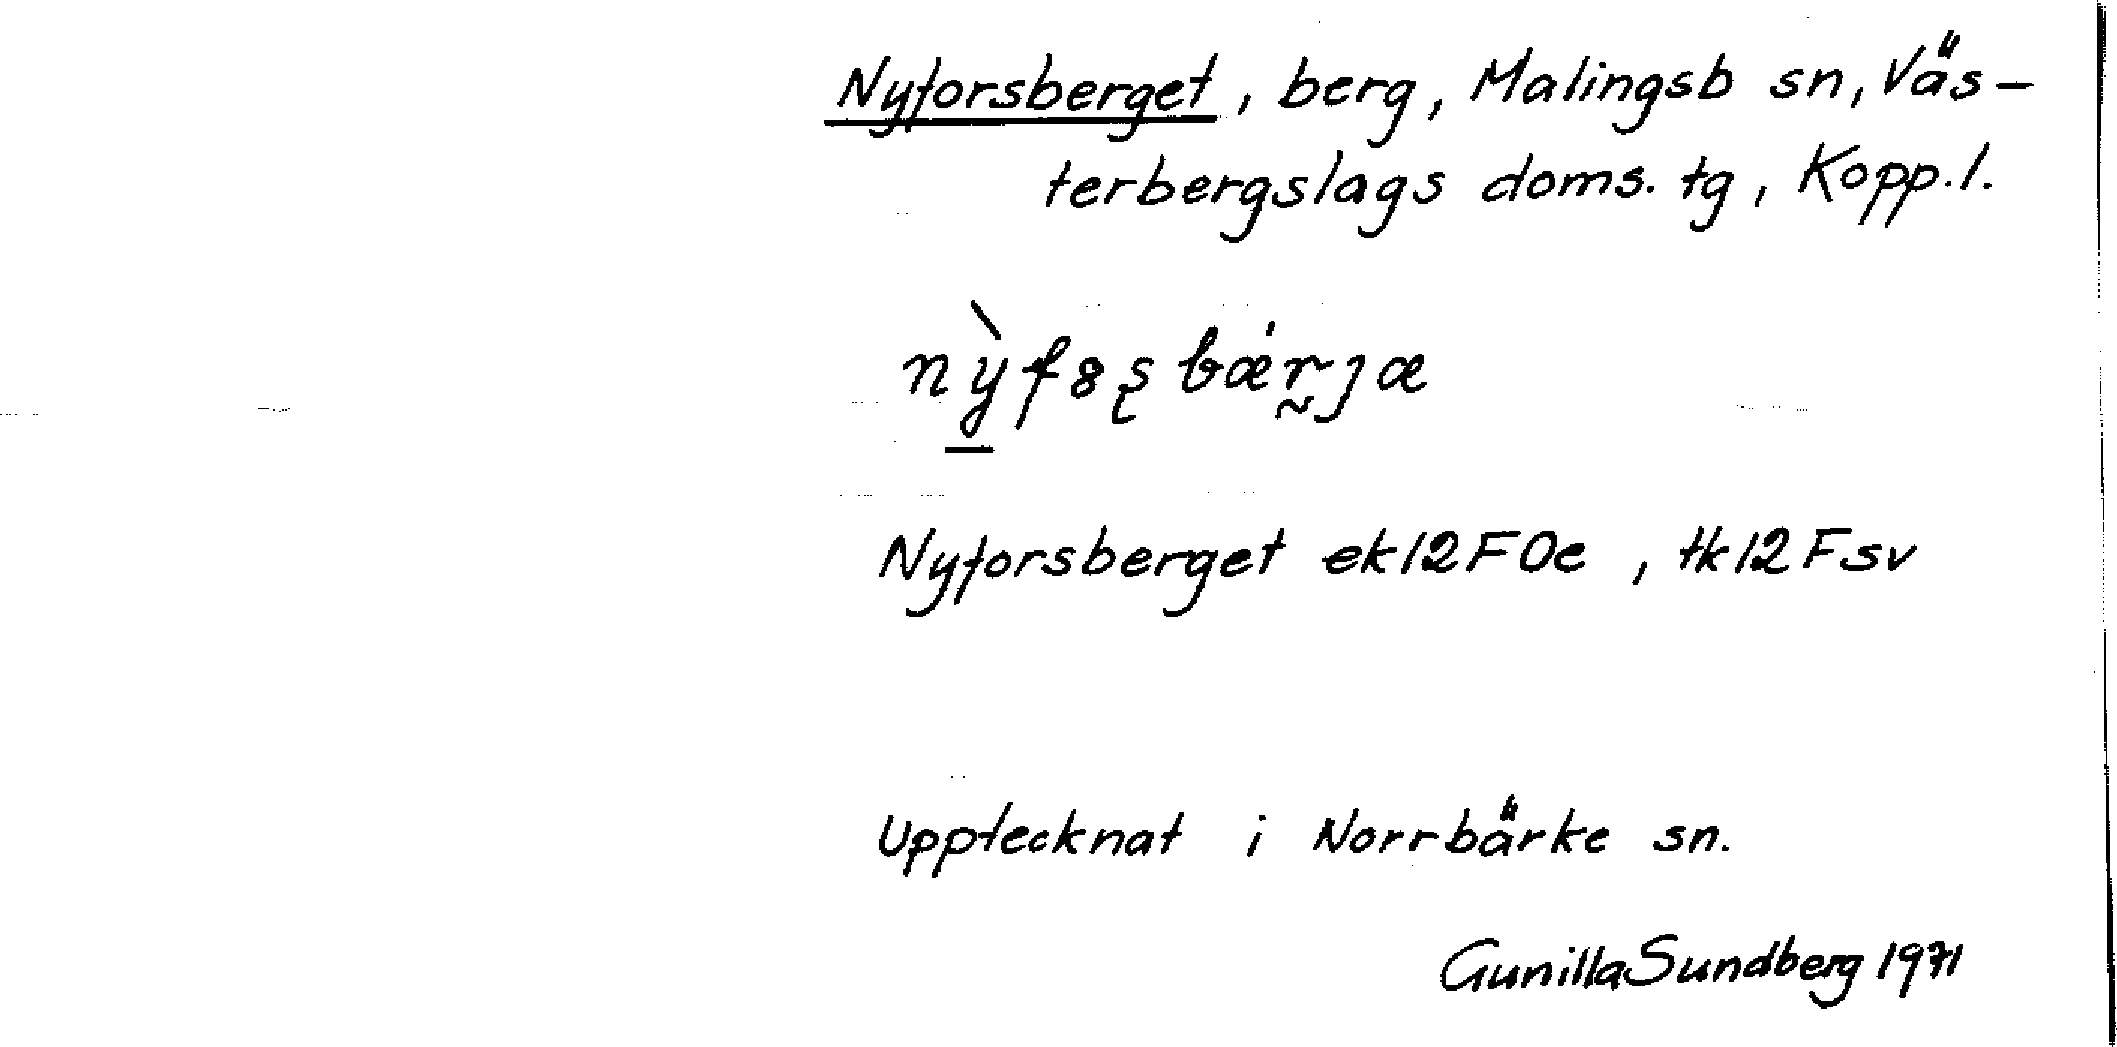 Nyforsberget, berg, Malingsb sn, Väs-
terbergslags doms. tg, Kopp. l.
nỳf8ʂbǽr̰ȷæ
Nyforsberget ek12F0e, tk12Fsv
Upptecknat i Norrbärke sn.
Gunilla Sundberg 1971